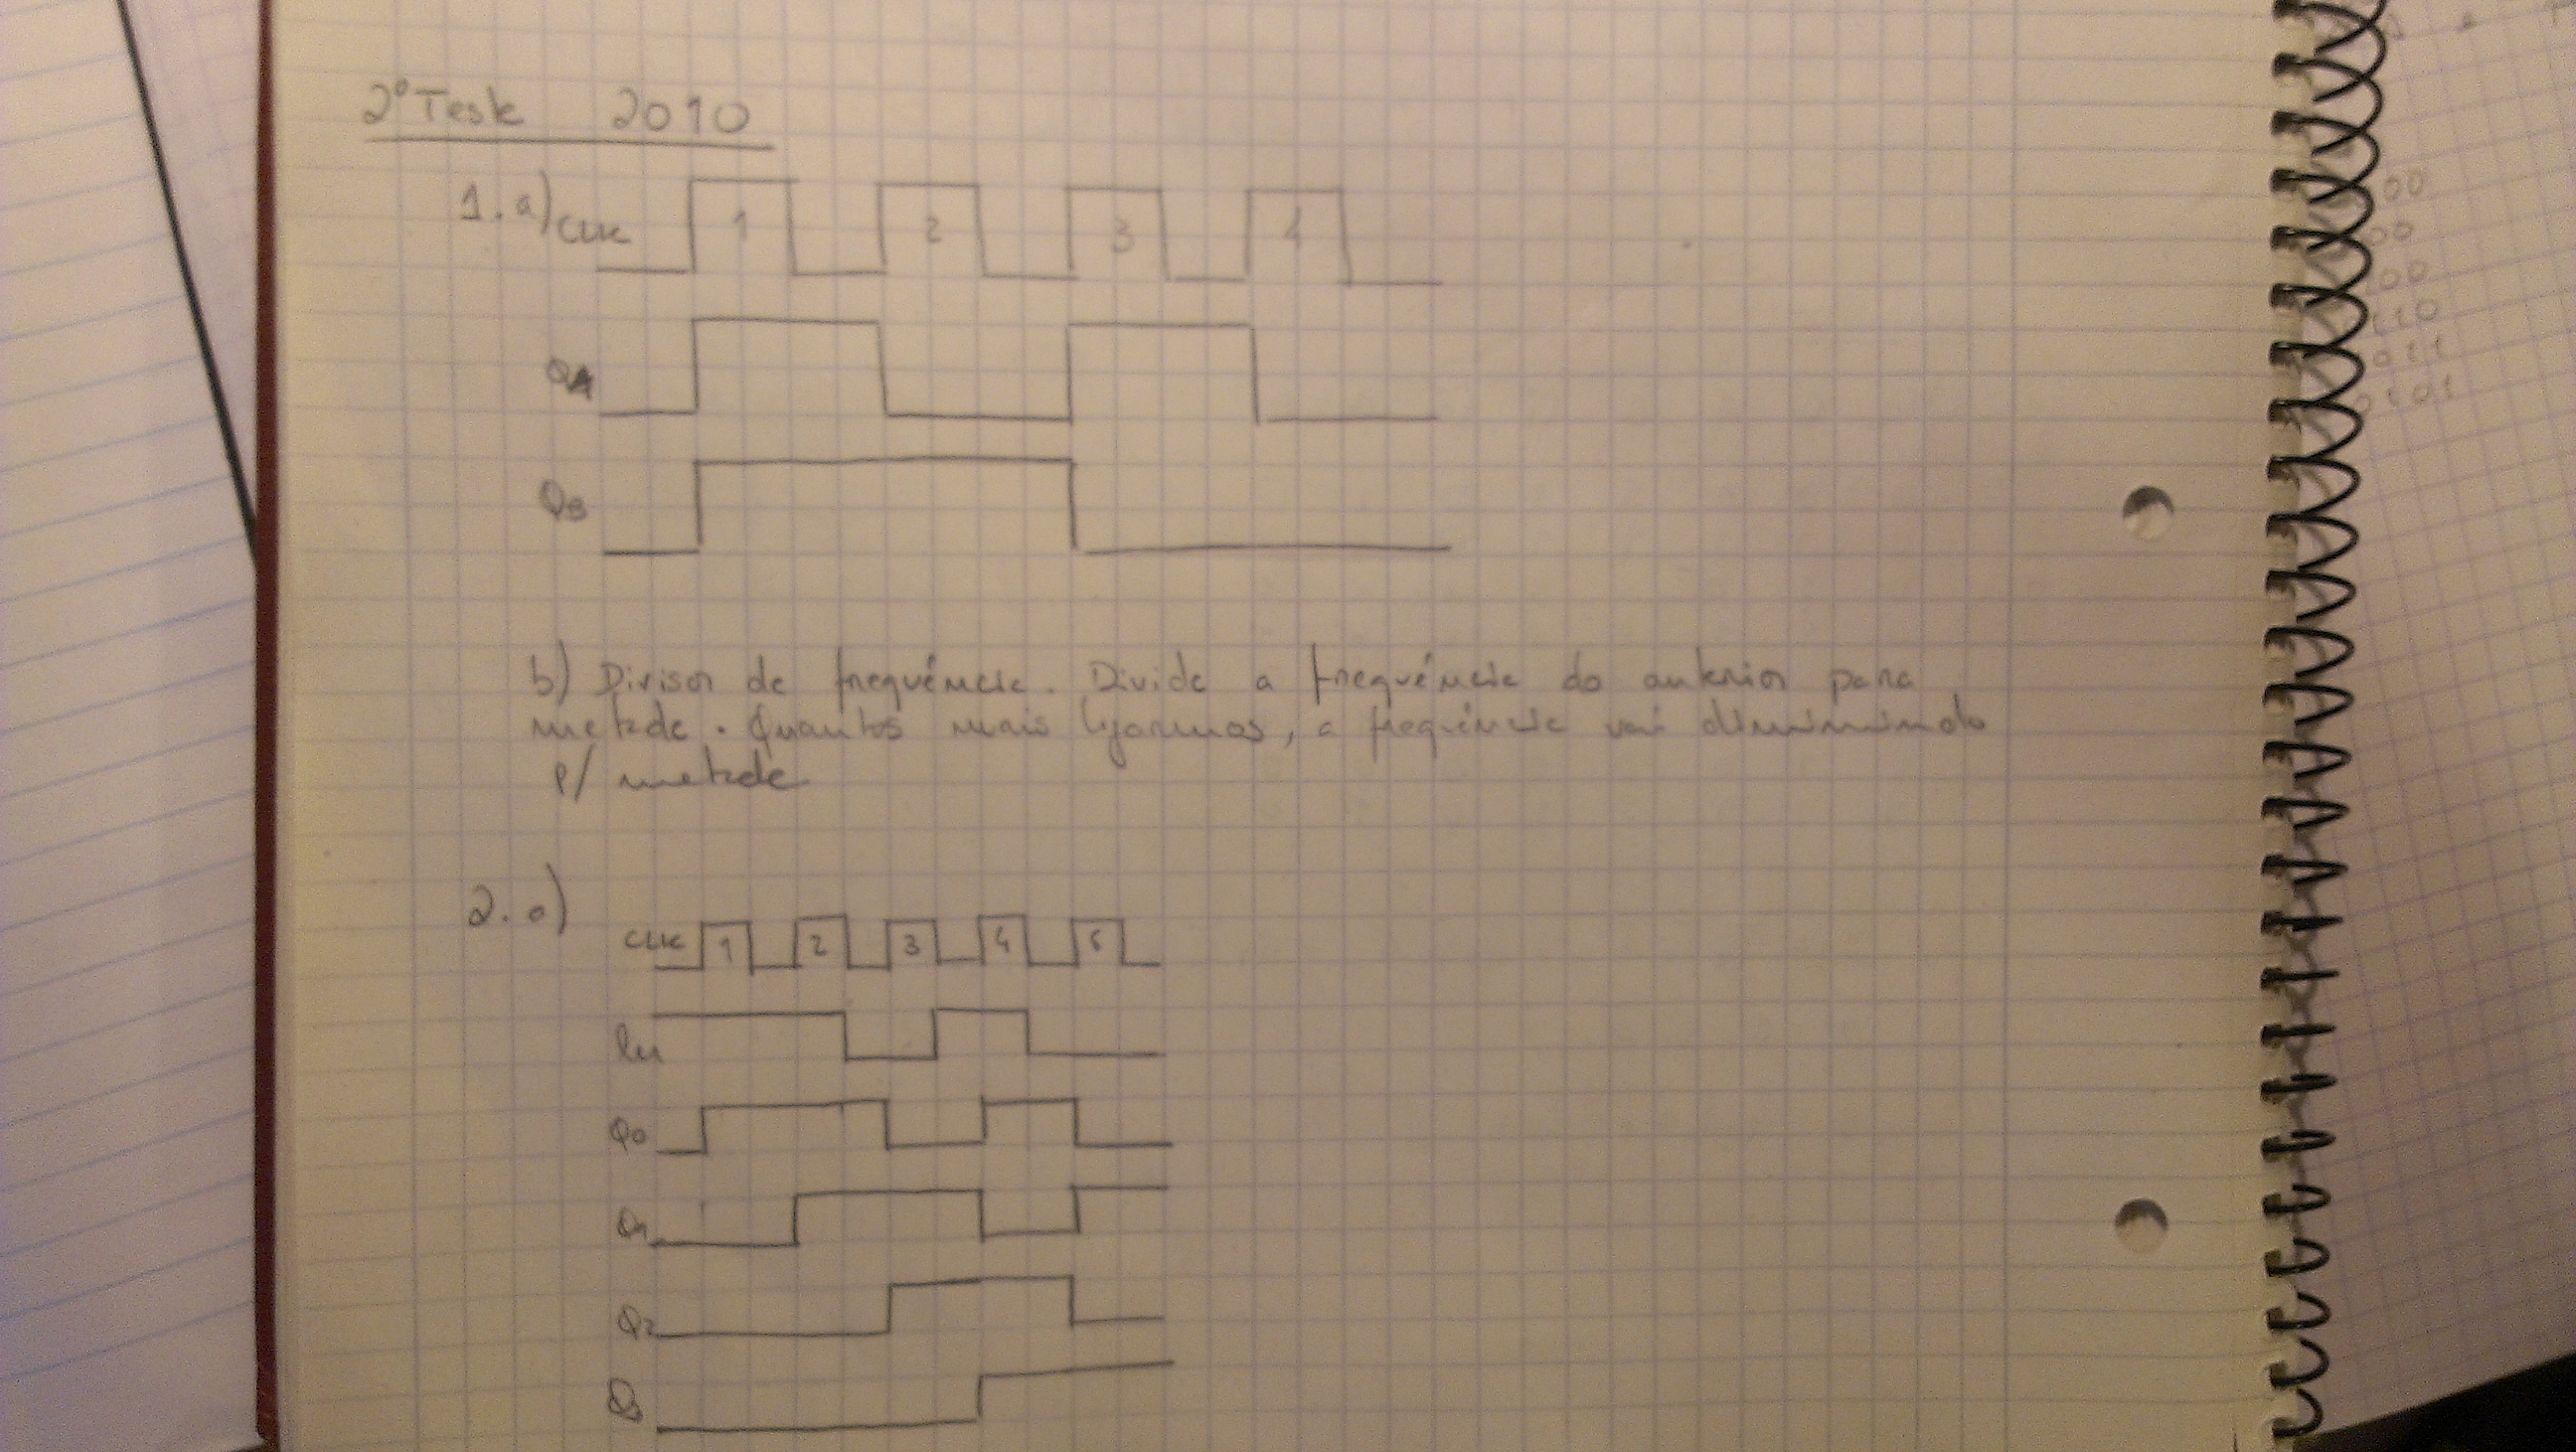 2º Teste 2010
1. a) CLK 1 2 3 4
QA
QB
b) Divisor de frequência. Divide a frequência do anterior para
metade. Quantos mais ligarmos, a frequência vai diminuindo
p/ metade
2. a)
CLK 1 2 3 4 5
In
Q0
Q1
Q2
Q3
00
00
00
110
011
0101